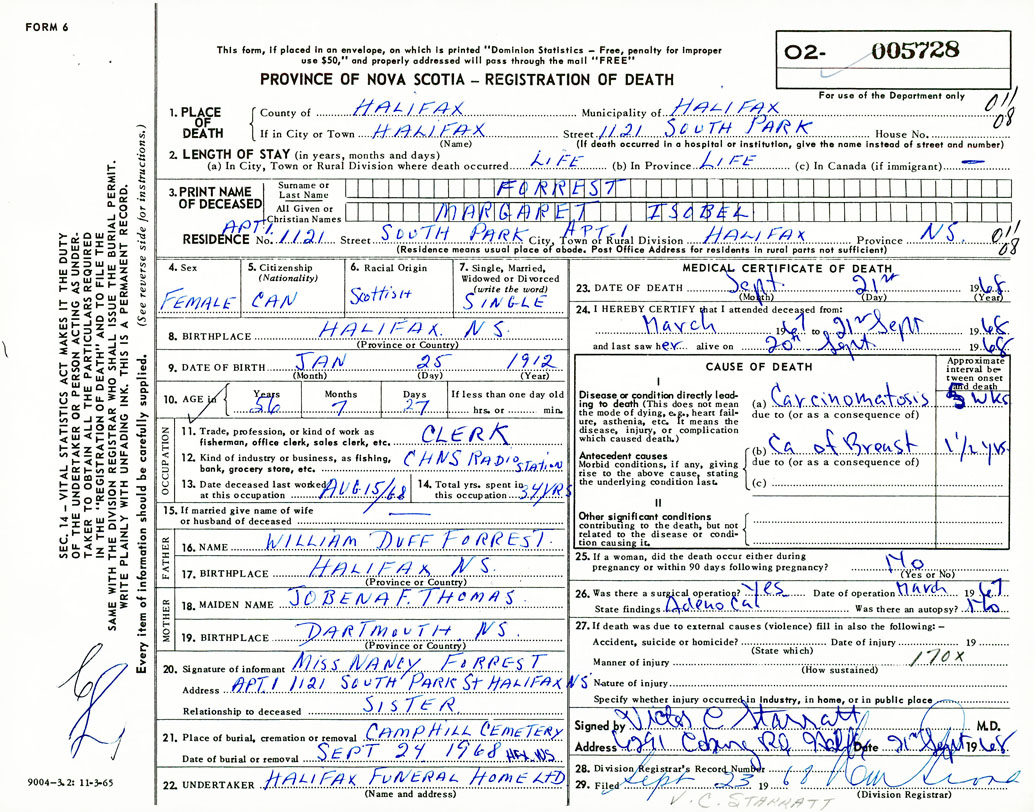 FORM 6
This form, if placed in an envelope, on which is printed "Dominion Statistics – Free, penalty for improper
use $50," and properly addressed will pass through the mail "FREE"
PROVINCE OF NOVA SCOTIA – REGISTRATION OF DEATH
O2- 005728
For use of the Department only
011
08
1. PLACE OF DEATH
County of HALIFAX Municipality of HALIFAX
If in City or Town HALIFAX Street 1121 SOUTH PARK House No.
(Name) (If death occurred in a hospital or institution, give the name instead of street and number)
2. LENGTH OF STAY (in years, months and days)
(a) In City, Town or Rural Division where death occurred LIFE (b) In Province LIFE (c) In Canada (if immigrant) —
3. PRINT NAME OF DECEASED
Surname or Last Name FORREST
All Given or Christian Names MARGARET ISOBEL
APT.1. APT.1
RESIDENCE No. 1121 Street SOUTH PARK City, Town or Rural Division HALIFAX Province NS. 011
08
(Residence means usual place of abode. Post Office Address for residents in rural parts not sufficient)
4. Sex FEMALE
5. Citizenship (Nationality) CAN
6. Racial Origin Scottish
7. Single, Married, Widowed or Divorced (write the word) SINGLE
8. BIRTHPLACE HALIFAX NS.
(Province or Country)
9. DATE OF BIRTH JAN 25 1912
(Month) (Day) (Year)
10. AGE in Years 56 Months 7 Days 27 If less than one day old
hrs. or min.
OCCUPATION
11. Trade, profession, or kind of work as fisherman, office clerk, sales clerk, etc. CLERK
12. Kind of industry or business, as fishing, bank, grocery store, etc. CHNS RADIO STATION
13. Date deceased last worked at this occupation AUG 15/68
14. Total yrs. spent in this occupation 34 YRS
15. If married give name of wife or husband of deceased —
FATHER
16. NAME WILLIAM DUFF FORREST.
17. BIRTHPLACE HALIFAX NS.
(Province or Country)
MOTHER
18. MAIDEN NAME JOBENA F. THOMAS.
19. BIRTHPLACE DARTMOUTH, NS.
(Province or Country)
20. Signature of informant MISS NANCY FORREST
Address APT.1 1121 SOUTH PARK ST HALIFAX NS
Relationship to deceased SISTER
21. Place of burial, cremation or removal CAMPHILL CEMETERY
Date of burial or removal SEPT 24 1968 HFX. NS
22. UNDERTAKER HALIFAX FUNERAL HOME LTD
(Name and address)
MEDICAL CERTIFICATE OF DEATH
23. DATE OF DEATH Sept 21st 1968
(Month) (Day) (Year)
24. I HEREBY CERTIFY that I attended deceased from:
March 1967 to 21st Sept 1968
and last saw her alive on 20th Sept 1968
CAUSE OF DEATH
Approximate interval between onset and death
I
Disease or condition directly leading to death (This does not mean the mode of dying, e.g., heart failure, asthenia, etc. It means the disease, injury, or complication which caused death.)
(a) Carcinomatosis 5 wks
due to (or as a consequence of)
Antecedent causes
Morbid conditions, if any, giving rise to the above cause, stating the underlying condition last.
(b) Ca of Breast 1 1/2 yrs.
due to (or as a consequence of)
(c)
II
Other significant conditions
contributing to the death, but not related to the disease or condition causing it.
25. If a woman, did the death occur either during pregnancy or within 90 days following pregnancy? No
(Yes or No)
26. Was there a surgical operation? Yes Date of operation March 1967
State findings Adeno Ca Was there an autopsy? No
27. If death was due to external causes (violence) fill in also the following: –
Accident, suicide or homicide? Date of injury 19
(State which)
Manner of injury 170X
(How sustained)
Nature of injury
Specify whether injury occurred in Industry, in home, or in public place
Signed by Victor C Starratt M.D.
Address 6291 Coburg Rd Hfx Date 21 Sept 1968
28. Division Registrar's Record Number
29. Filed Sept 23 1968
(Division Registrar)
V. C. STARRATT
SEC. 14 – VITAL STATISTICS ACT MAKES IT THE DUTY
OF THE UNDERTAKER OR PERSON ACTING AS UNDER-
TAKER TO OBTAIN ALL THE PARTICULARS REQUIRED
IN THE "REGISTRATION OF DEATH" AND TO FILE THE
SAME WITH THE DIVISION REGISTRAR WHO SHALL ISSUE THE BURIAL PERMIT.
WRITE PLAINLY WITH UNFADING INK. THIS IS A PERMANENT RECORD.
Every item of information should be carefully supplied. (See reverse side for instructions.)
9004-3.2: 11-3-65